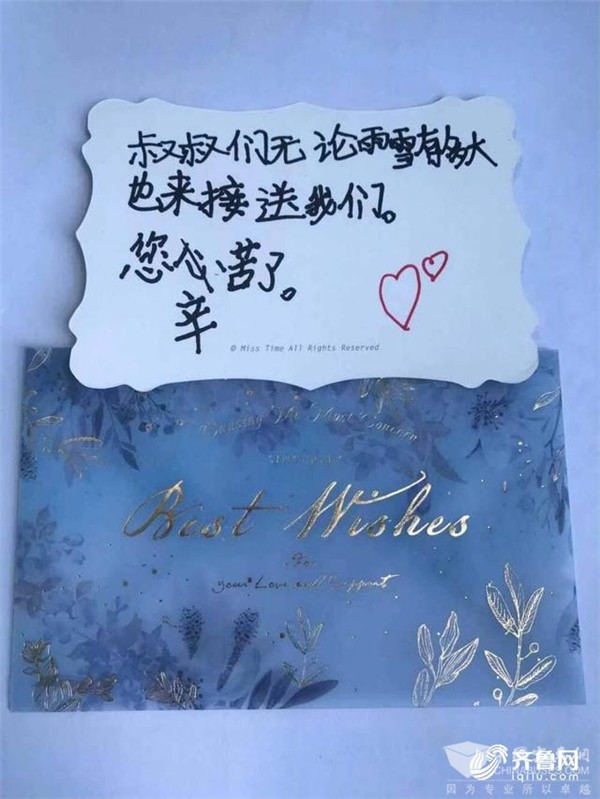 叔叔们无论雨雪有多大
也来接送我们。
您心苦了。
辛
© Miss Time All Rights Reserved
Best Wishes
For
your Love and Support
齐鲁网
iqilu.com
因为专业所以卓越